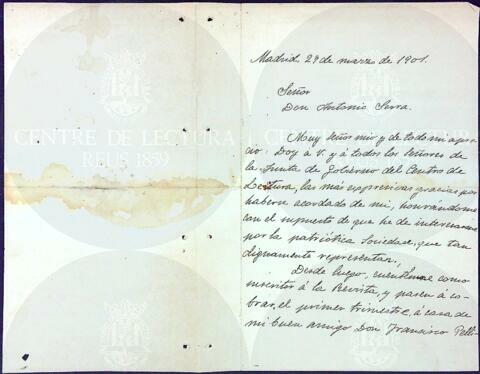 Madrid 29 de marzo de 1901.
Señor
Don Antonio Serra.
Muy señor mio y de todo mi apre-
cio: Doy á V. y á todos los señores de
la Junta de Gobierno del Centro de
Lectura, las más expresivas gracias por
haberse acordado de mi, honrándome
con el supuesto de que he de interesarme
por la patriótica Sociedad, que tan
dignamente representan.
Desde luego, cuéntenme como
suscritor á la Revista, y pasen á co-
brar, el primer trimestre, á casa de
mi buen amigo Don Francisco Pelli-
CENTRE DE LECTURA
REUS 1859